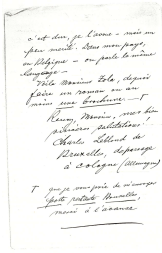 c'est dur, je l'avoue – mais un
peu mérité. Dans mon pays,
en Belgique – on parle le même
langage –
Voilà Monsieur Zola, depuis
faire un roman ou au
moins une brochure – T
Recev, Monsieur, mes bien
sincères salutations!
Charles Leblond de
Bruxelles, de passage
à Cologne (Allemagne)
T que je vous prie de m'envoyer
poste restante Bruxelles,
merci à l'avance